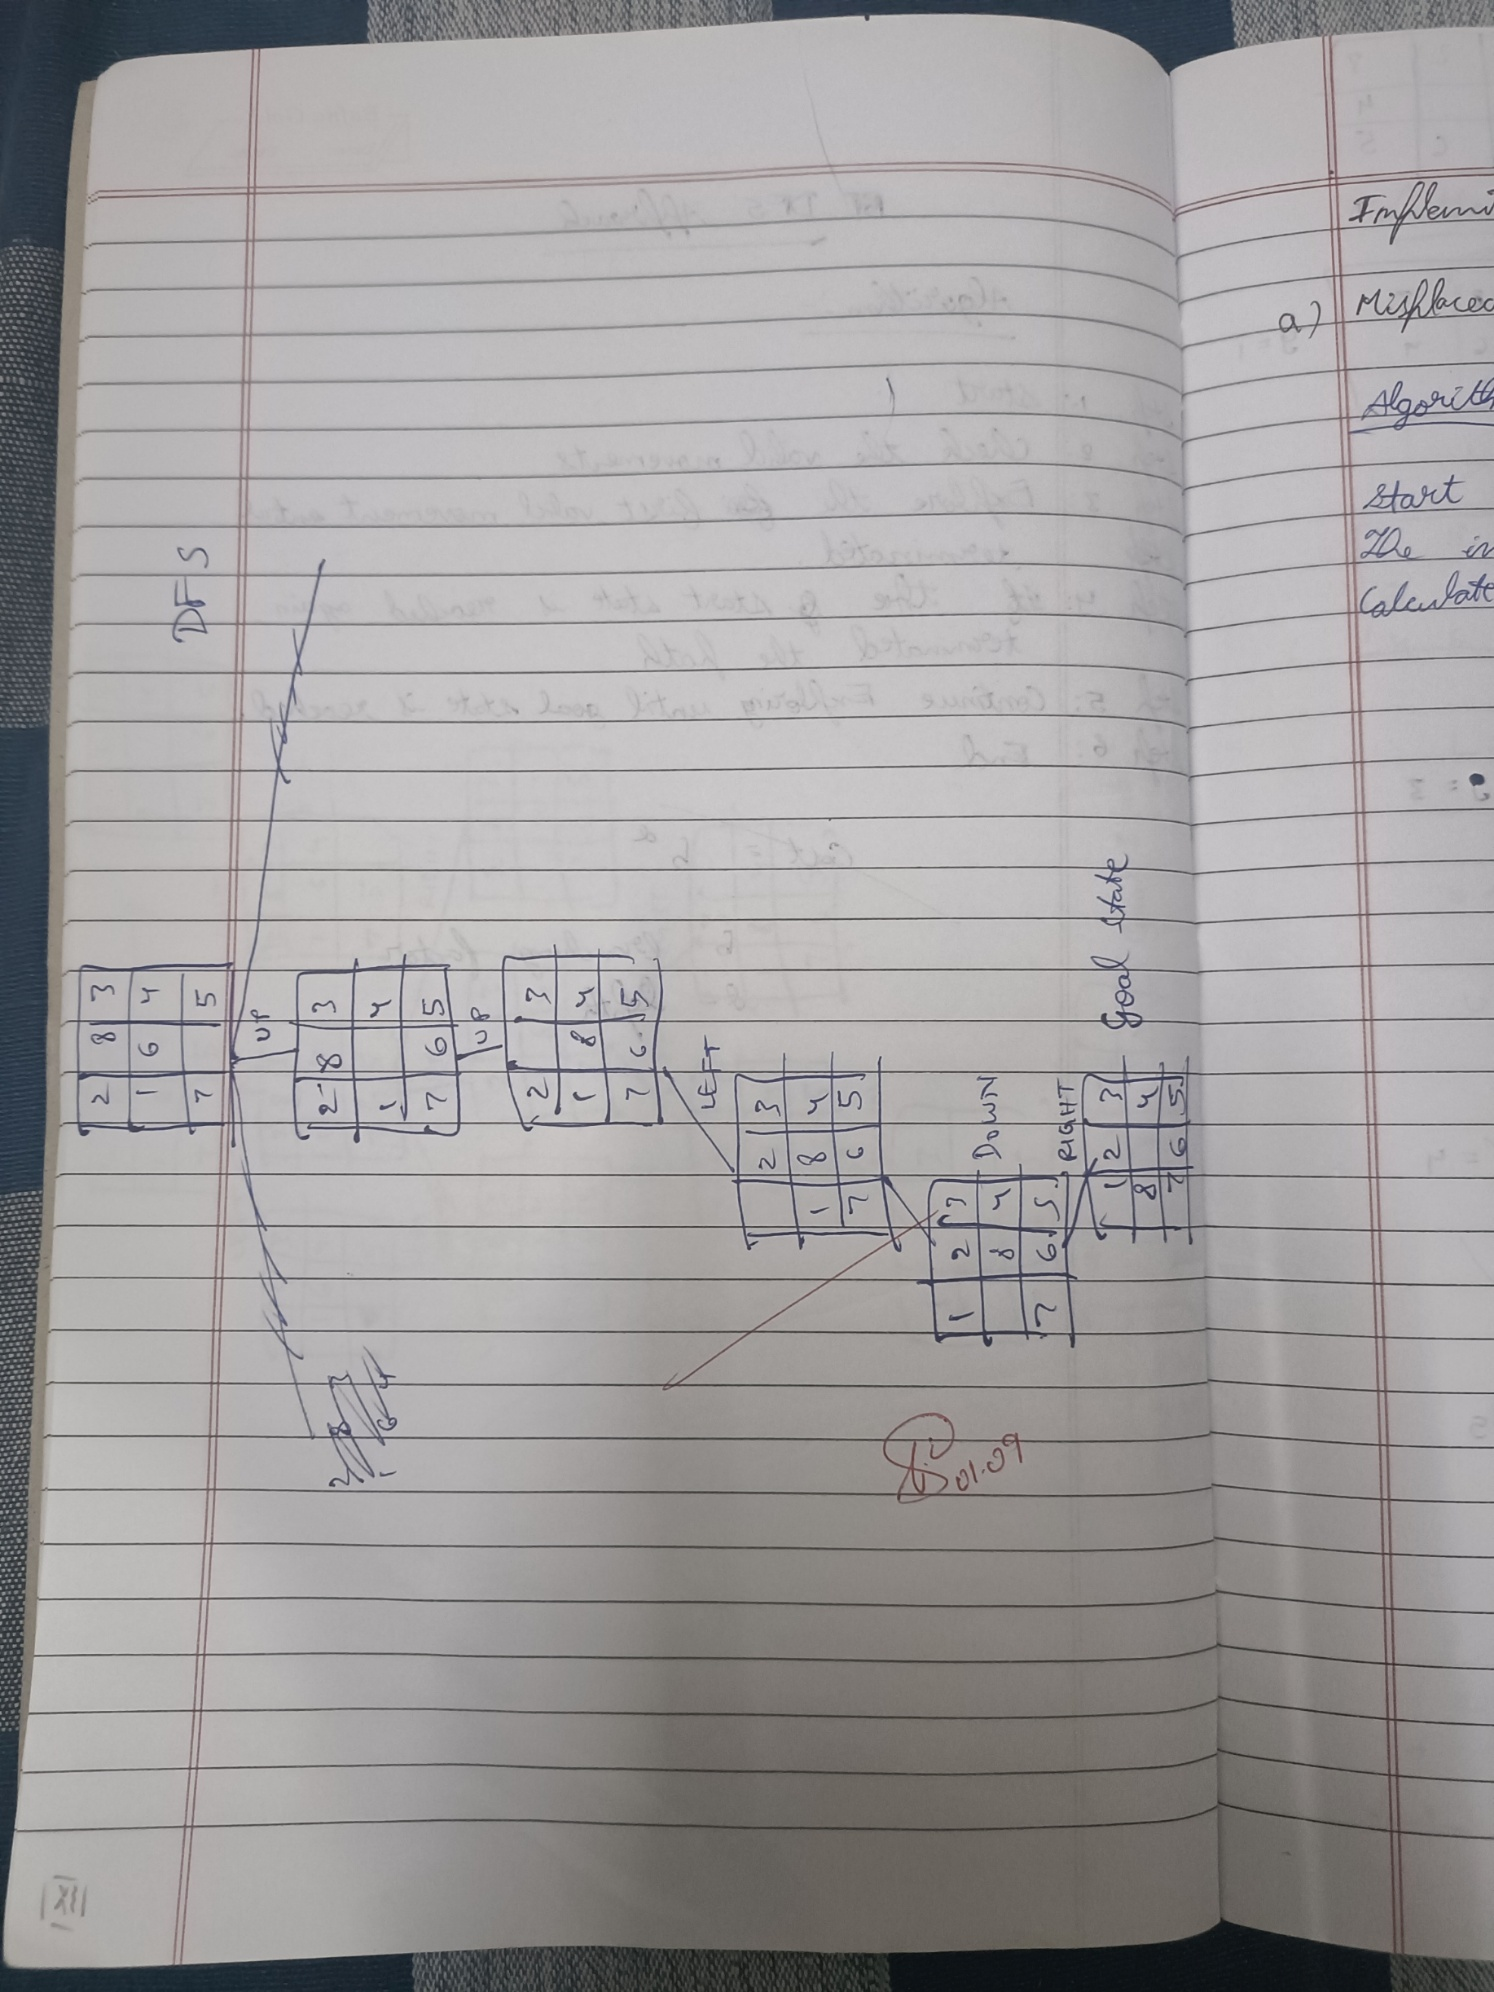 DFS
2 8 3
1 6 4
7 5
UP
2 8 3
1 4
7 6 5
UP
2 3
1 8 4
7 6 5
LEFT
2 3
1 8 4
7 6 5
DOWN
1 2 3
8 4
7 6 5
RIGHT
1 2 3
8 4
7 6 5
Goal State
01.09
a) Misplaced
Start
The in
Calculate